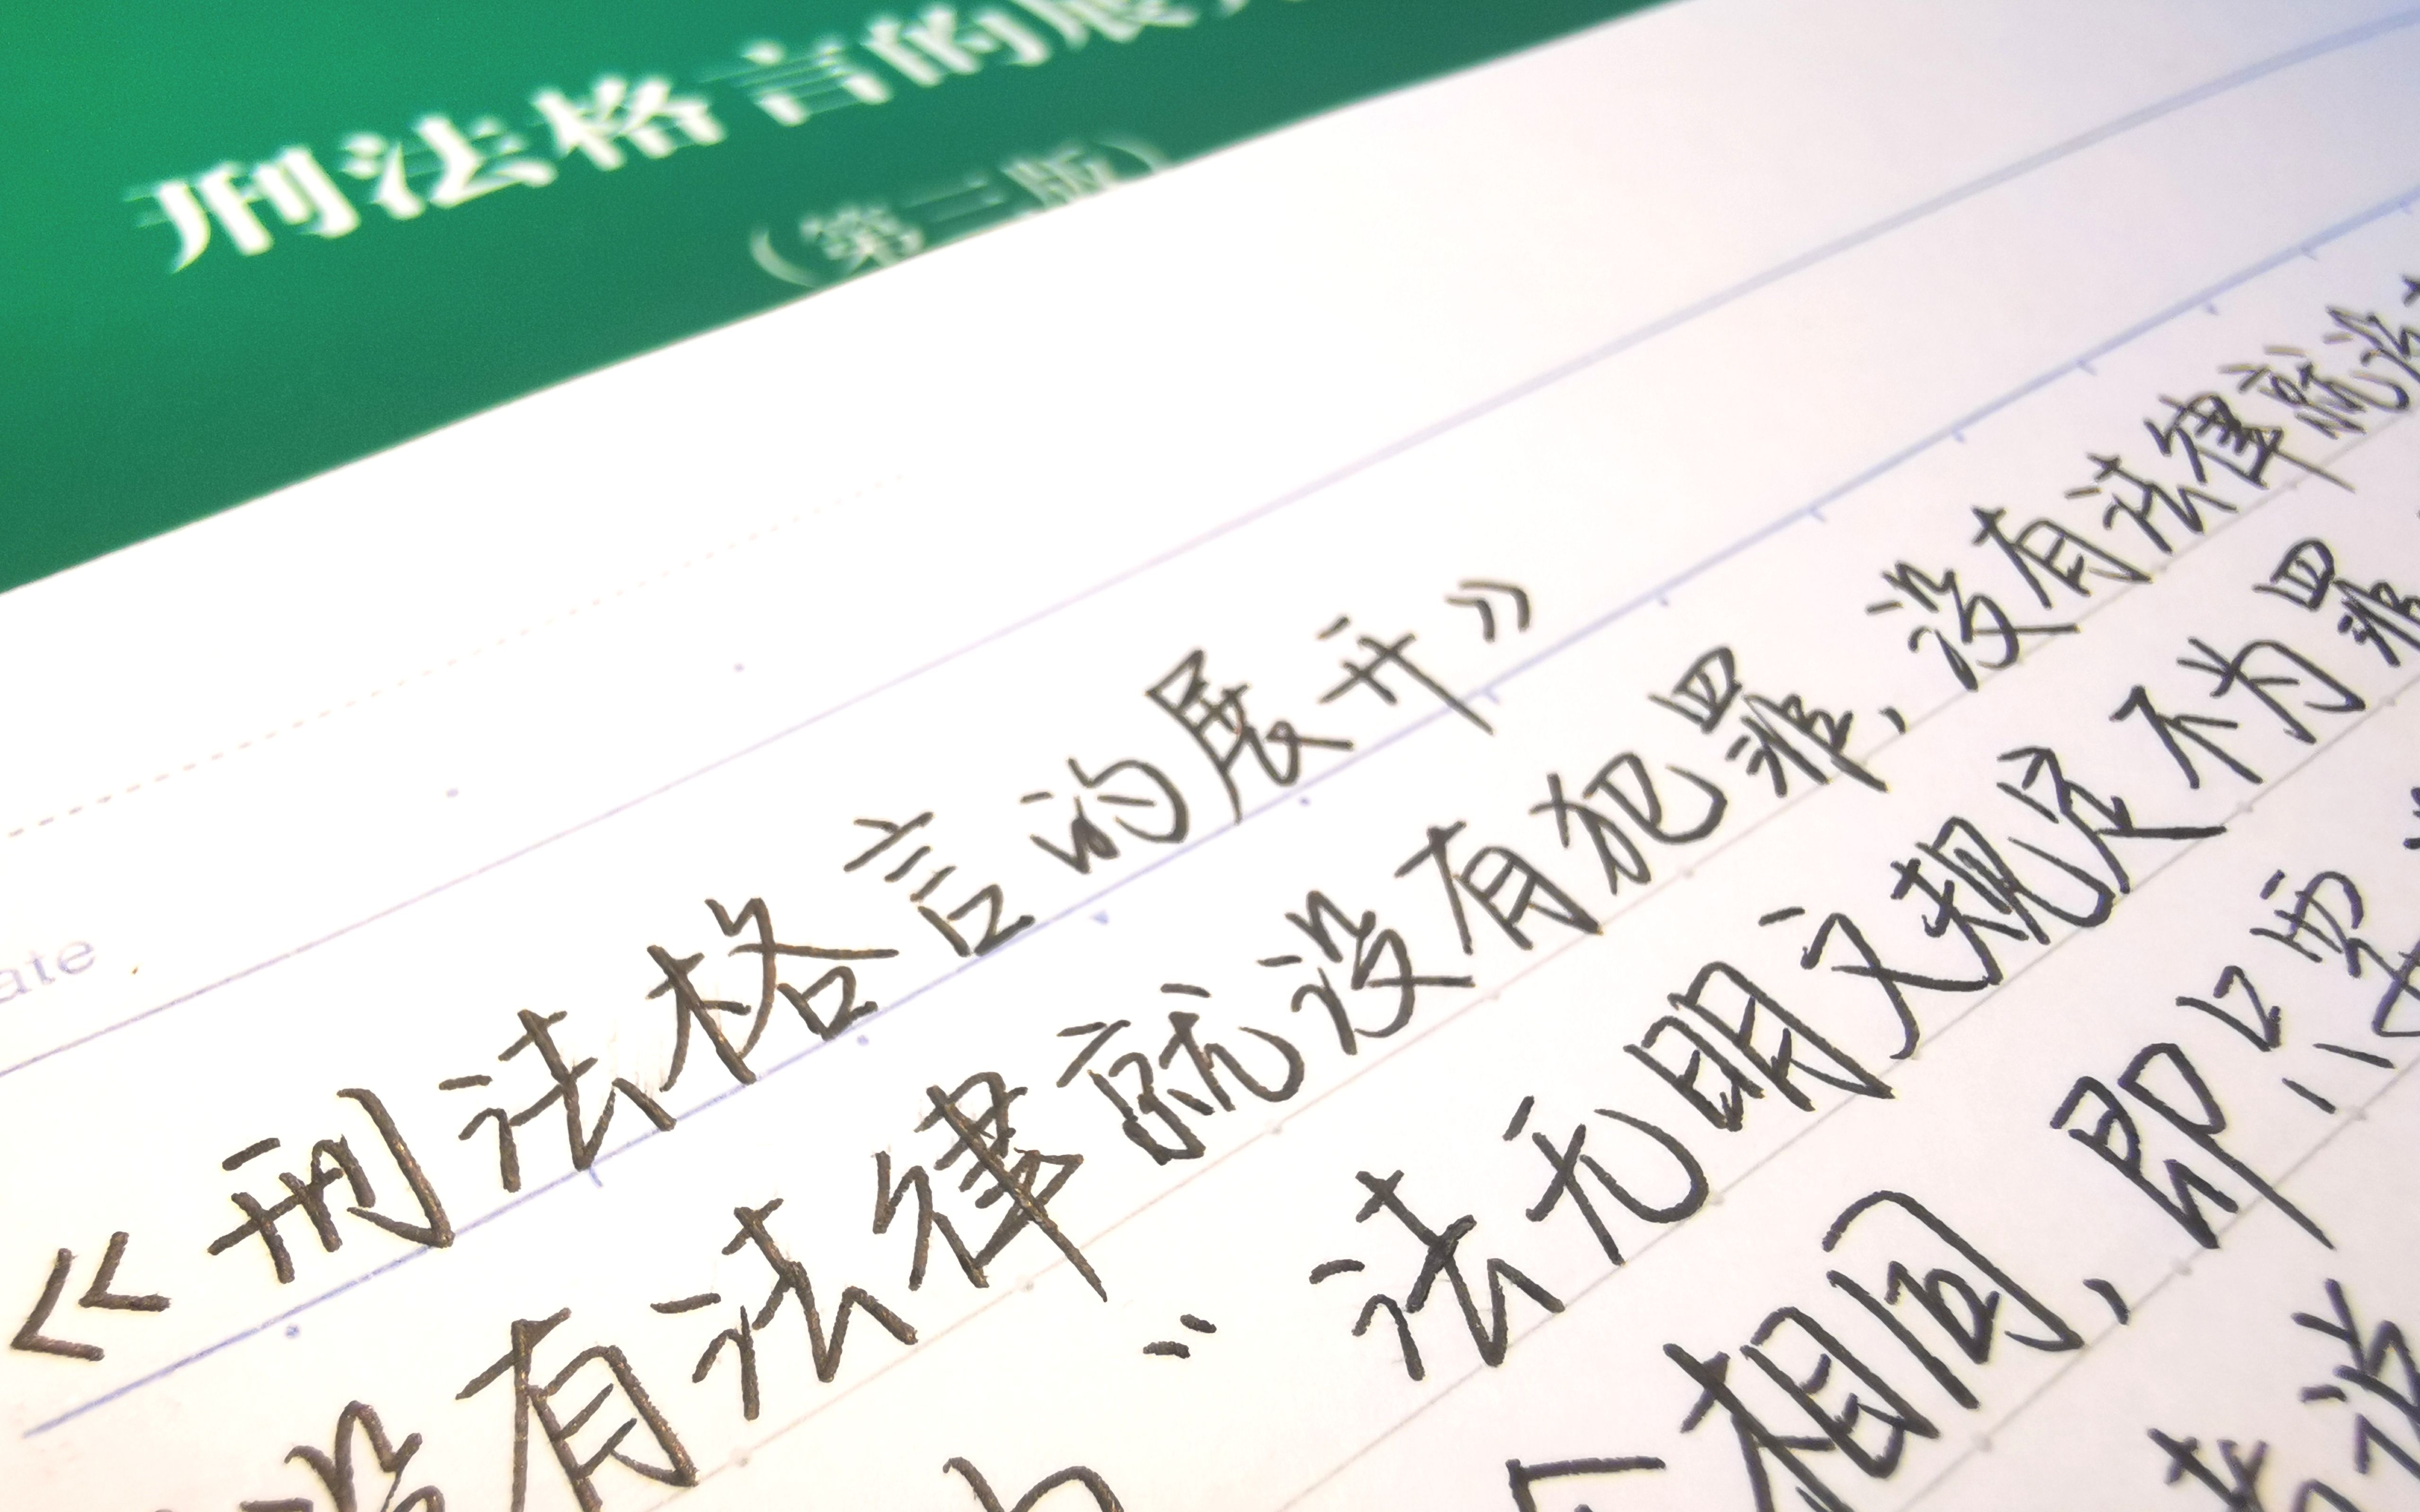 刑法格言的展
（第三版）
ate
《刑法格言的展开》
没有法律就没有犯罪，没有法律就没
” 法无明文规定不为罪
相同，即只要